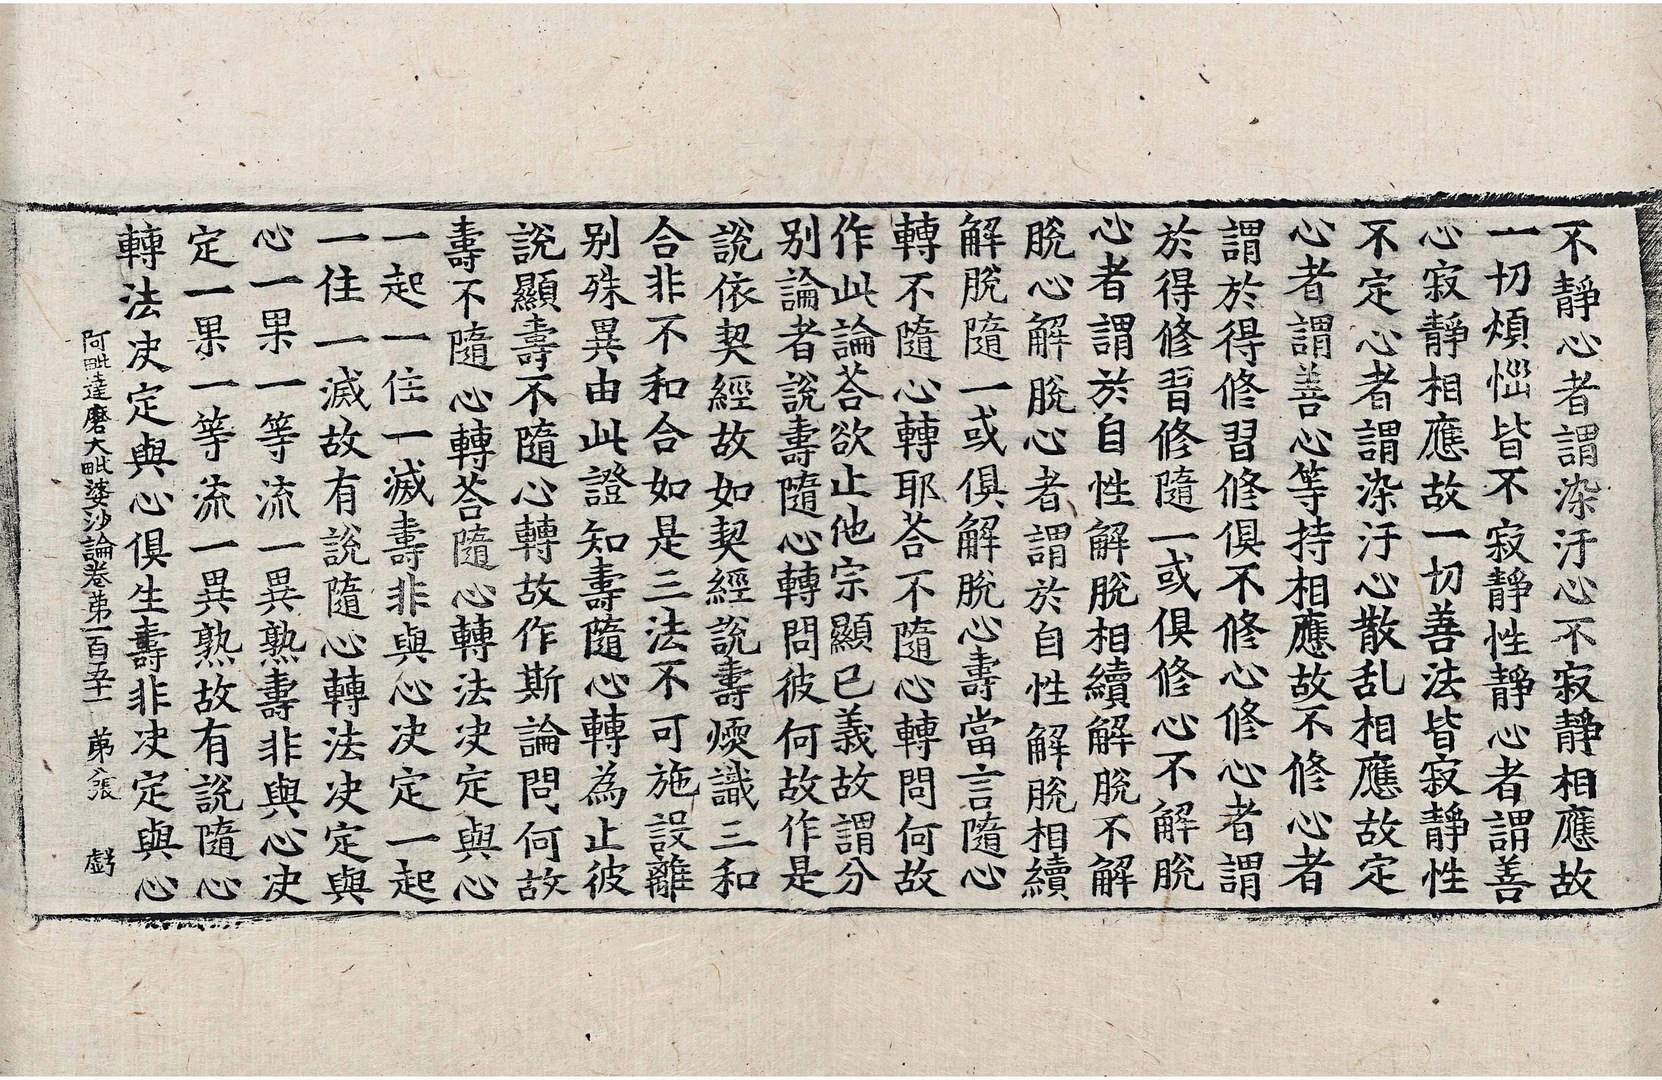 不靜心者謂染汙心不寂靜相應故
一切煩惱皆不寂靜性靜心者謂善
心寂靜相應故一切善法皆寂靜性
不定心者謂染汙心散乱相應故定
心者謂善心等持相應故不修心者
謂於得修習修俱不修心修心者謂
於得修習修隨一或俱修心不解脫
心者謂於自性解脫相續解脫不解
脫心解脫心者謂於自性解脫相續
解脫隨一或俱解脫心壽當言隨心
轉不隨心轉耶荅不隨心轉問何故
作此論荅欲止他宗顯已義故謂分
別論者說壽隨心轉問彼何故作是
說依契經故如契經說壽煖識三和
合非不和合如是三法不可施設離
別殊異由此證知壽隨心轉為止彼
說顯壽不隨心轉故作斯論問何故
壽不隨心轉荅隨心轉法决定與心
一起一住一滅壽非與心决定一起
一住一滅故有說隨心轉法决定與
心一果一等流一異熟壽非與心决
定一果一等流一異熟故有說隨心
轉法决定與心俱生壽非决定與心
阿毗達磨大毗婆沙論卷苐一百五十一 苐八張 虧